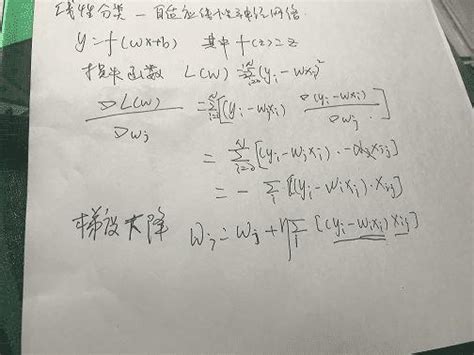 线性分类 — 自适应线性神经网络
y = f(wx+b) 其中 f(z)=z
损失函数 L(w) = ½∑(yᵢ - wxᵢ)²
▽L(w) / ▽wⱼ = ∑[(yᵢ - wⱼxᵢ) ▽(yᵢ - wxᵢ) / ▽wⱼ]
= ∑[(yᵢ - wⱼxᵢ) · - xᵢⱼ]
= - ∑ᵢ [(yᵢ - wᵢxᵢ) · xᵢⱼ]
梯度下降 wⱼ = wⱼ + η∑ᵢ [(yᵢ - wᵢxᵢ) xᵢⱼ]